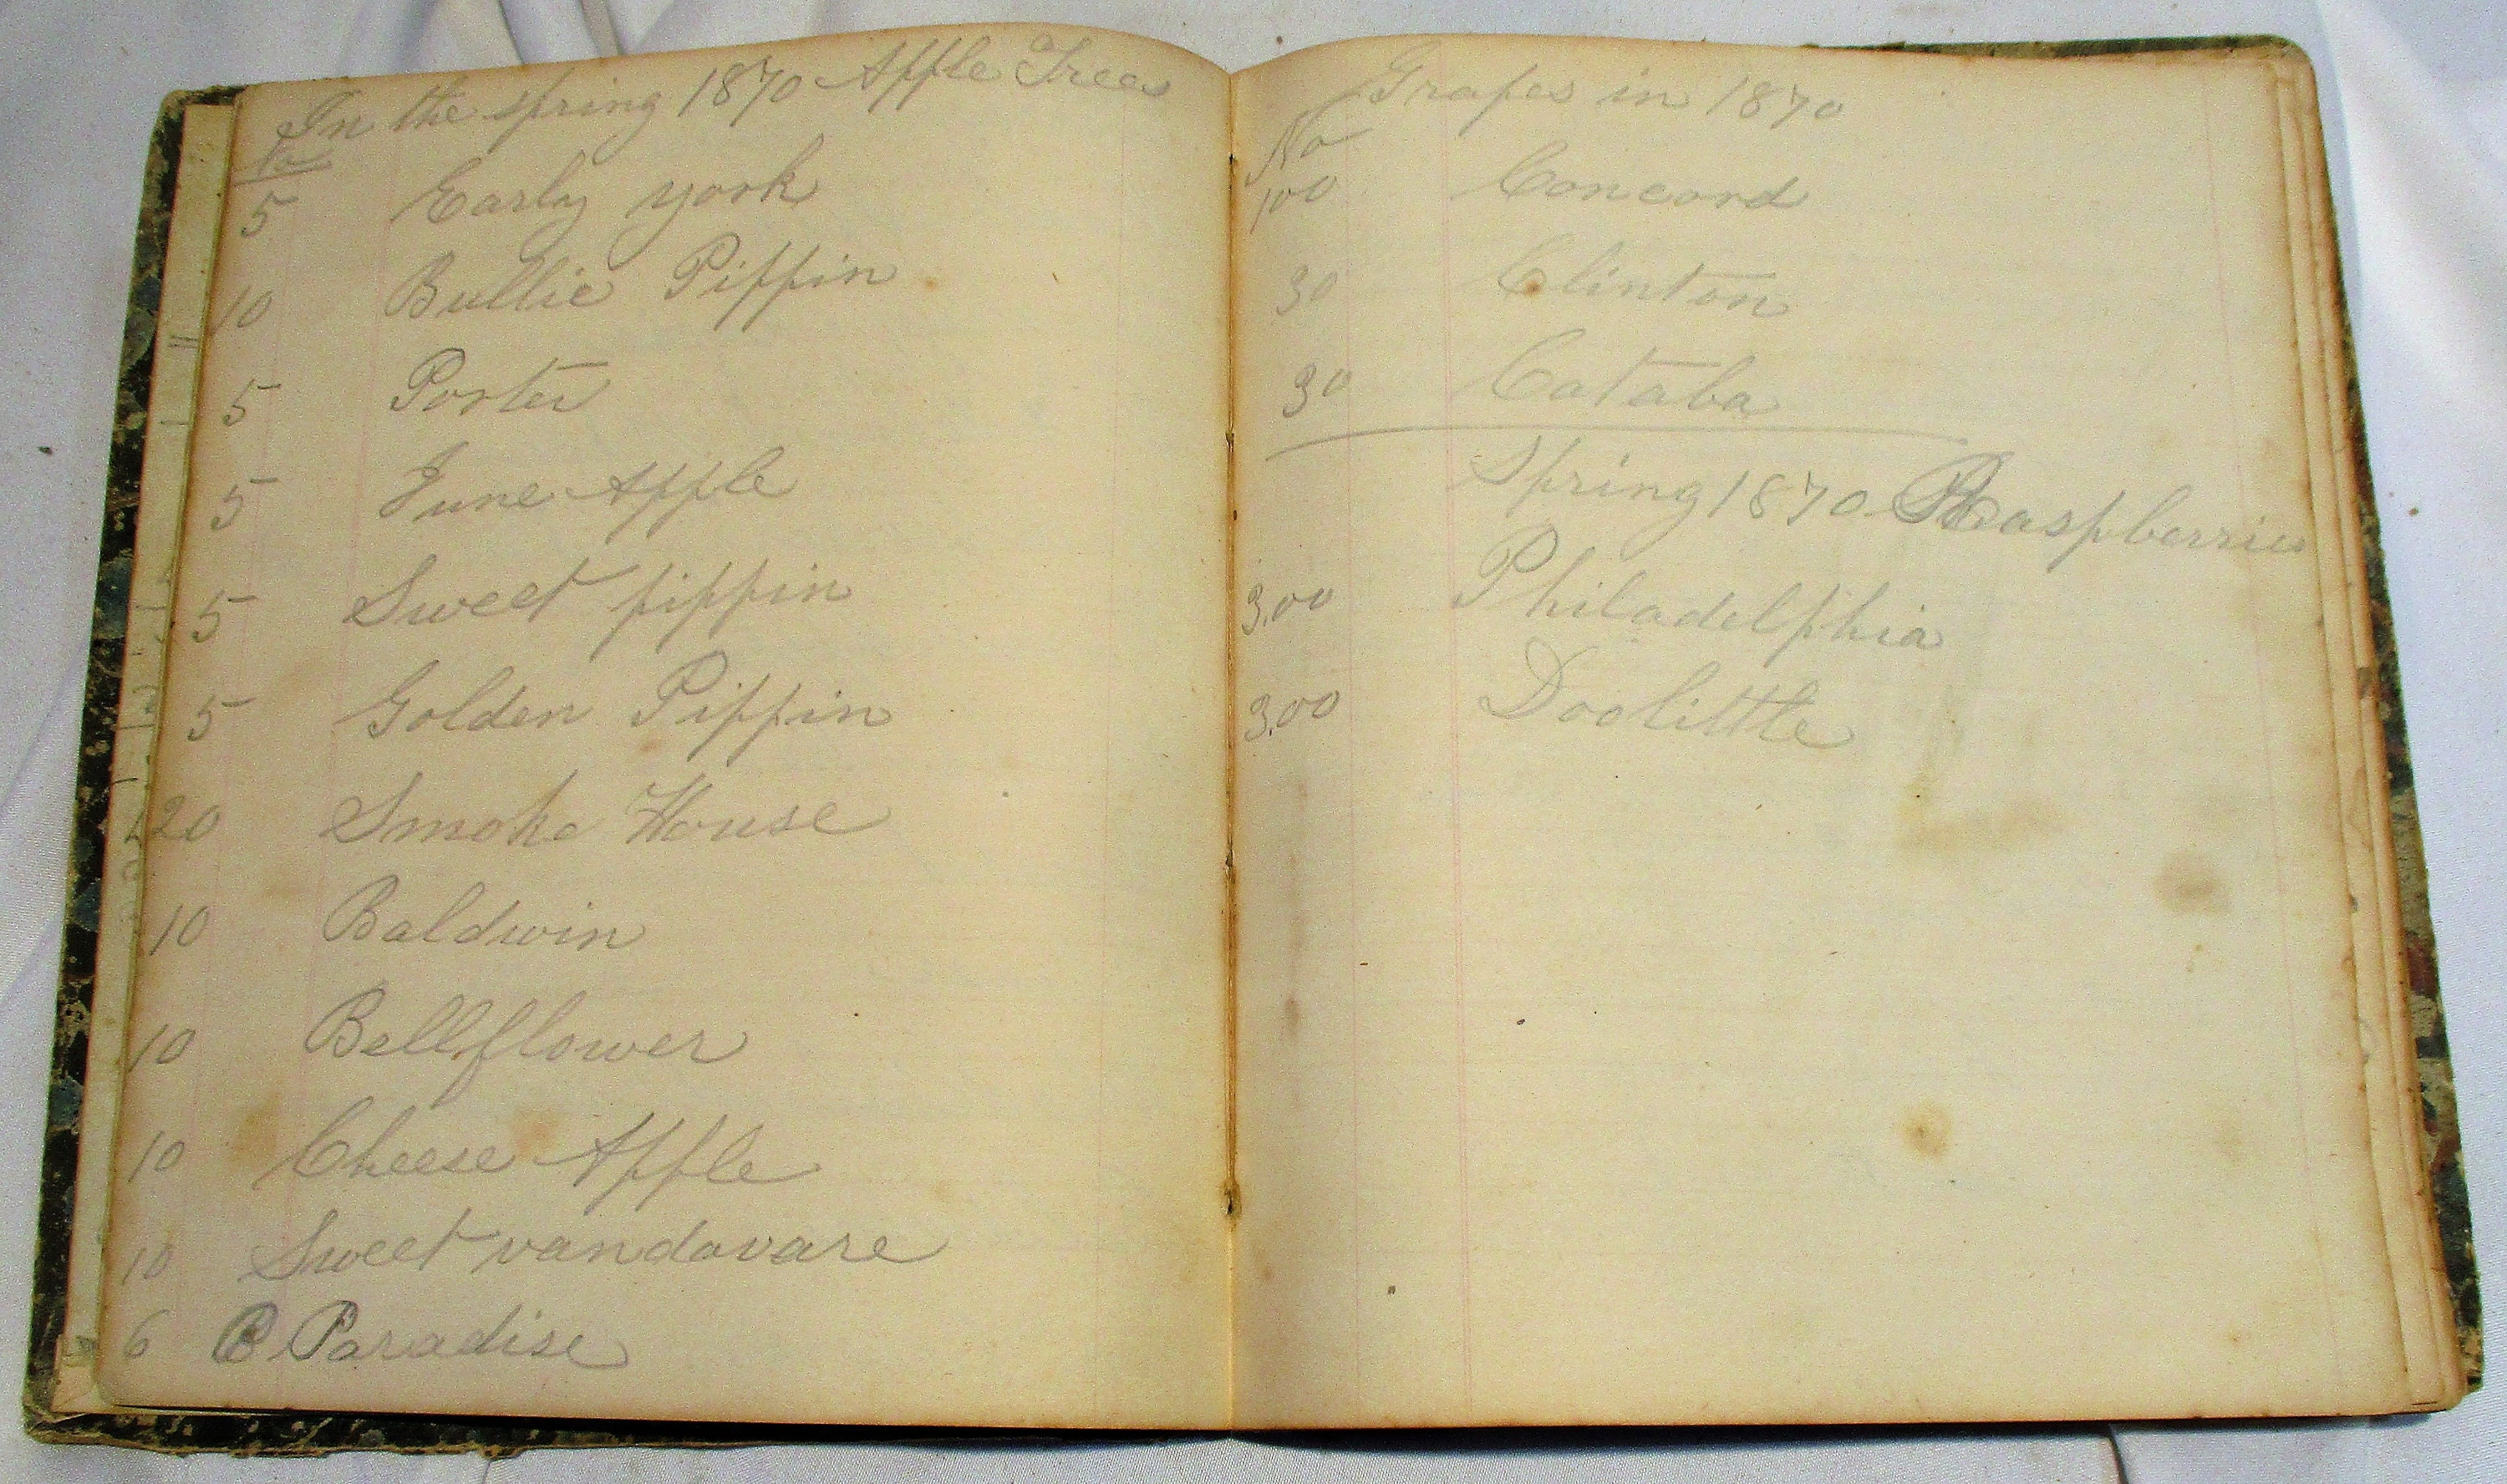 In the spring 1870 Apple Trees
No
5 Early york
10 Bullie Pippin
5 Porter
5 June Apple
5 Sweet pippin
5 Golden Pippin
20 Smoke House
10 Baldwin
10 Bellflower
10 Cheese Apple
10 Sweet vandavare
6 Paradise
Grapes in 1870
No
100 Concord
30 Clinton
30 Cataba
Spring 1870 Raspberries
3.00 Philadelphia
3.00 Doolittle